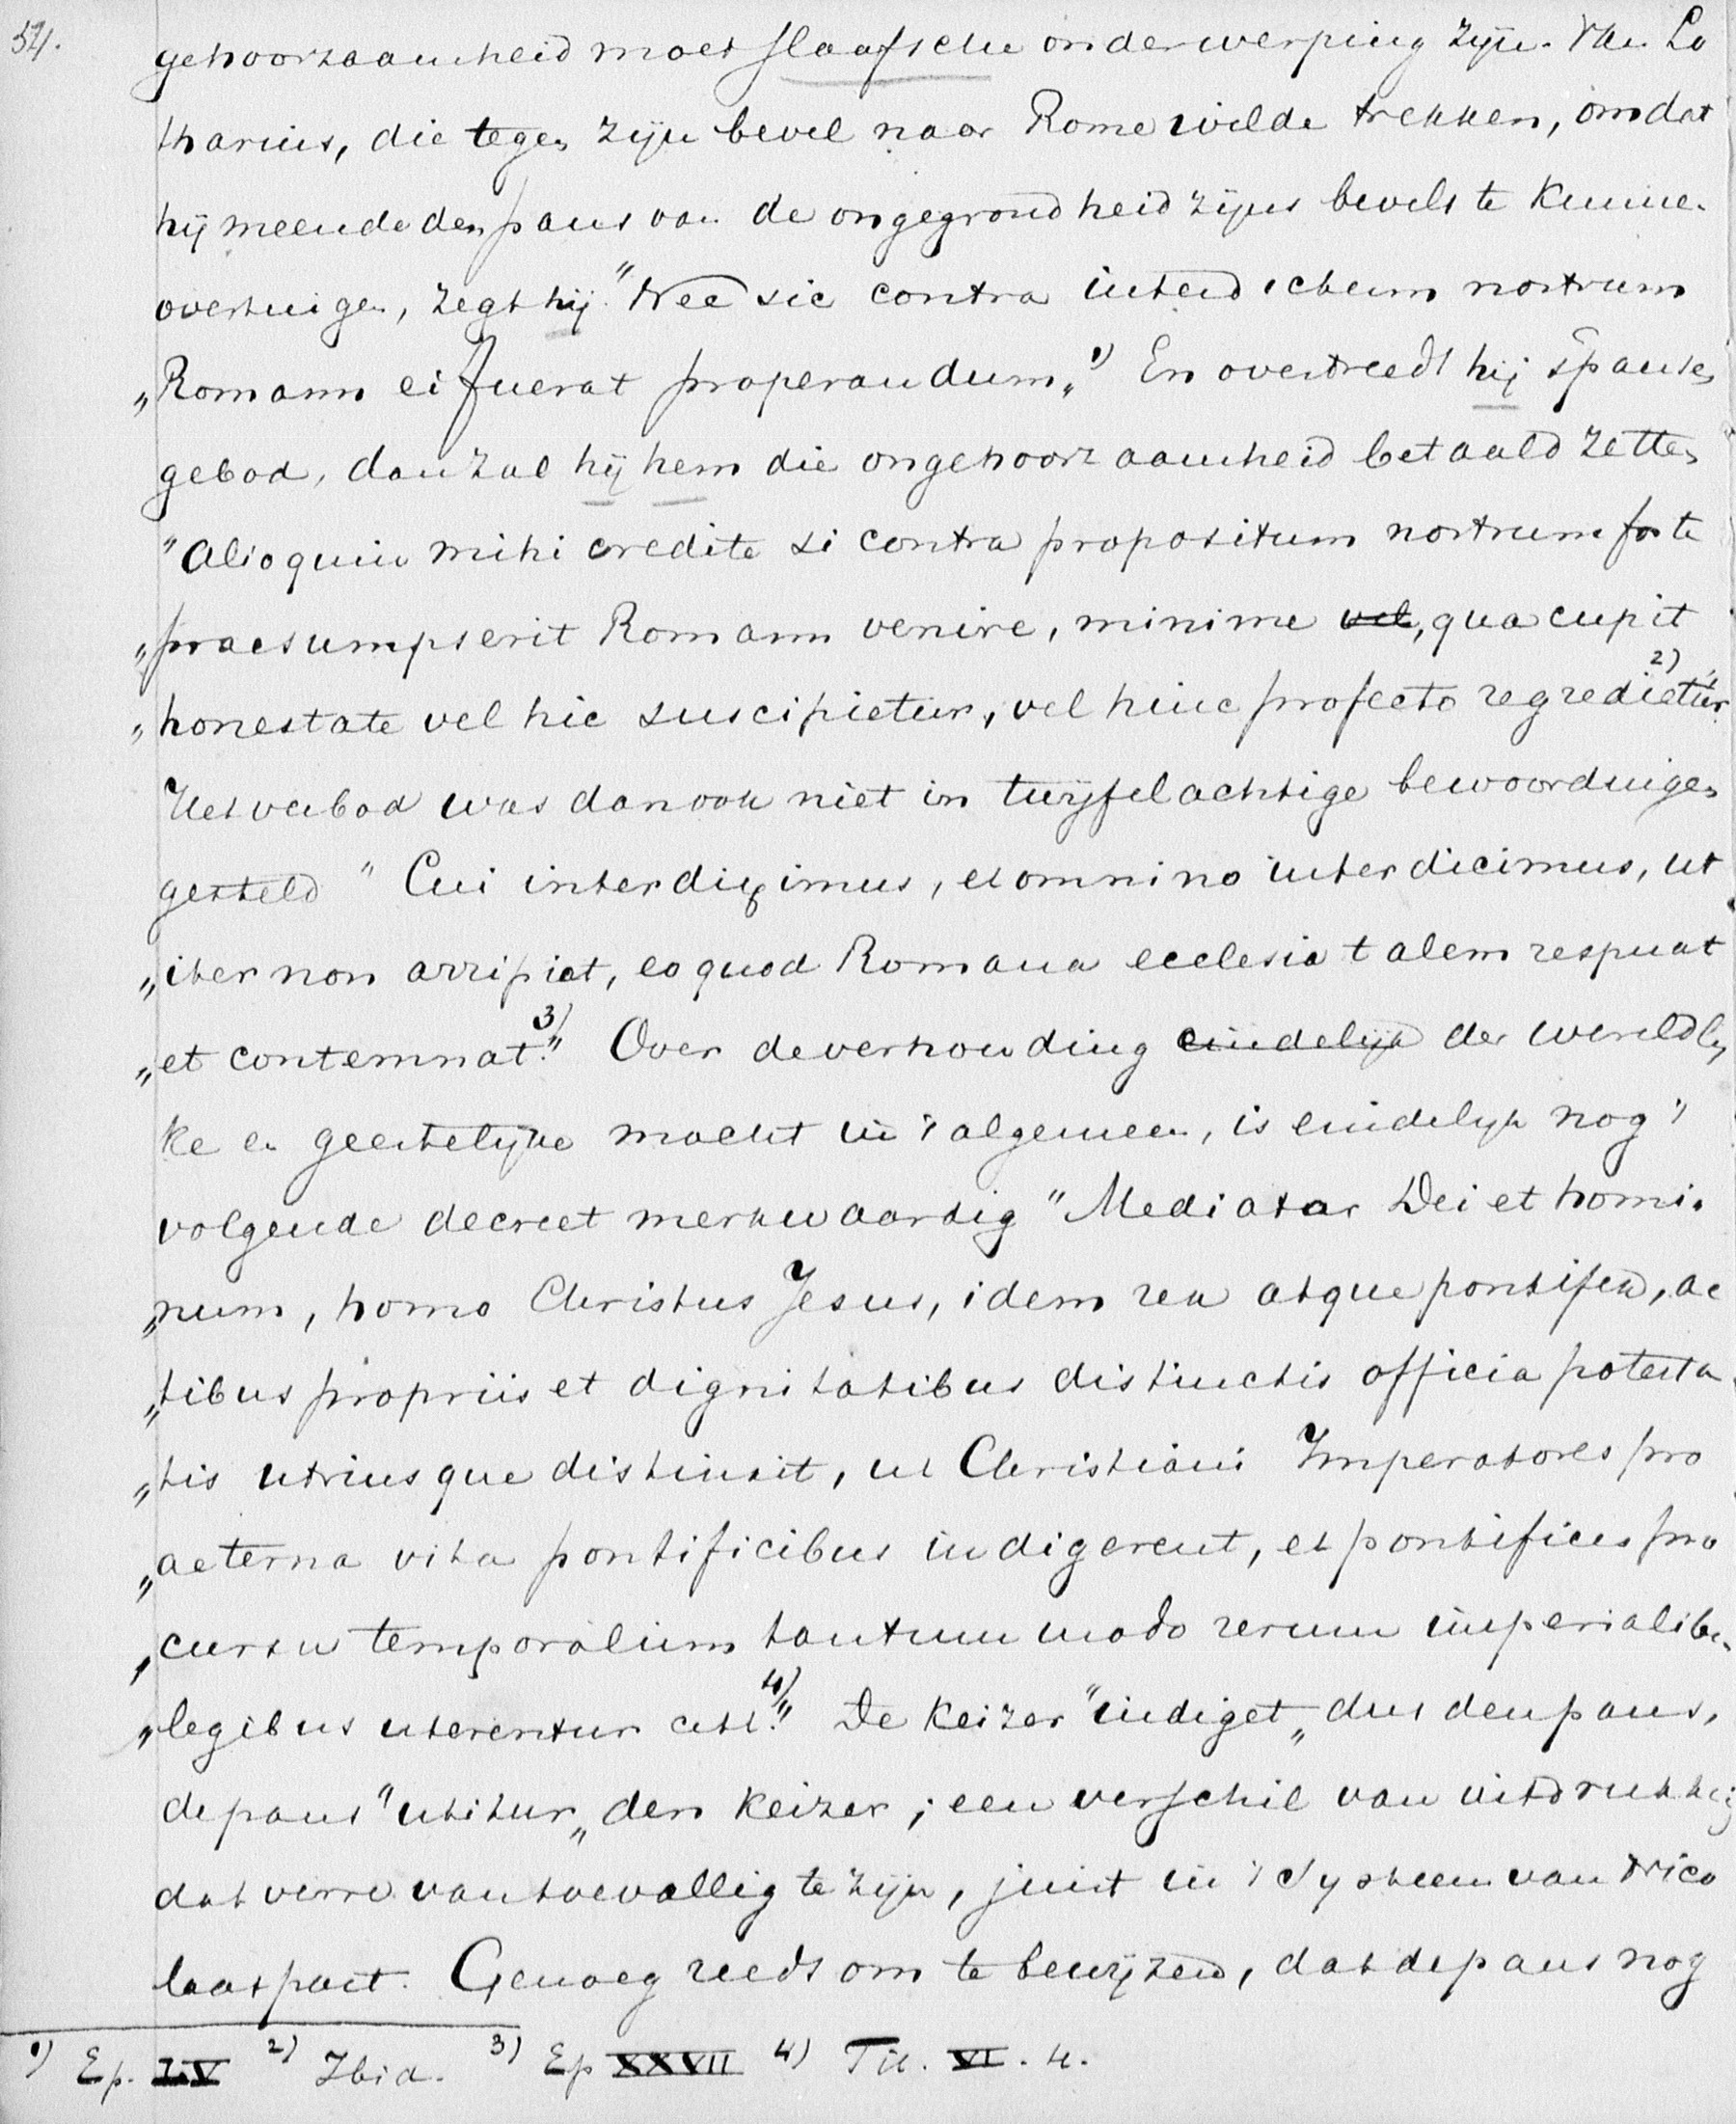 54.
gehoorzaamheid moet slaafsche onderwerping zijn. Van Lo
tharius, die tegen zijn bevel naar Rome wilde trekken, omdat
hij meende den paus van de ongegrondheid zijns bevels te kunnen
overtuigen, zegt hij "Nec sic contra interdictum nostrum
„Romam ei fuerat properandum„ 1) En overtreedt hij 's pausen
gebod, dan zal hij hem die ongehoorzaamheid betaald zetten
"Alioquin mihi credite si contra propositum nostrum forte
„praesumpserit Romam venire, minime vel, qua cupit
„honestate vel hic suscipietur, vel hinc profecto regredietur" 2)
Het verbod was dan ook niet in twijfelachtige bewoordingen
gesteld "Cui interdiximus, et omnino interdicimus, ut
„iter non arripiat, eo quod Romana ecclesia talem respuat
„et contemnat." 3) Over de verhouding eindelijk der wereldly
ke en geestelijke macht in 't algemeen, is eindelijk nog 't
volgende decreet merkwaardig "Mediator Dei et homi-
„num, homo Christus Jesus, idem rex atque pontifex, ac
„tibus propriis et dignitatibus distinctis officia potesta
„tis utriusque distinxit, ut Christiani Imperatores pro
„aeterna vita pontificibus indigerent, et pontifices pro
„cursu temporalium tantummodo rerum imperialibus
„legibus uterentur cett." 4) De keizer "indiget„ dus den paus,
de paus "utitur„ den keizer; een verschil van uitdrukking
dat verre van toevallig te zijn, juist in 't systeem van Nico
laas past. Genoeg reeds om te bewijzen, dat de paus nog
1) Ep. LV 2) Ibid. 3) Ep XXVII 4) Tit. VI. 4.